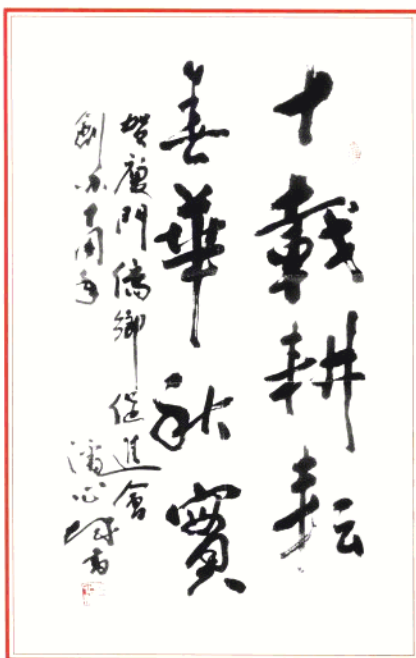 十載耕耘
春華秋實
賀廈門僑鄉促進會
創办十周年
潘心城